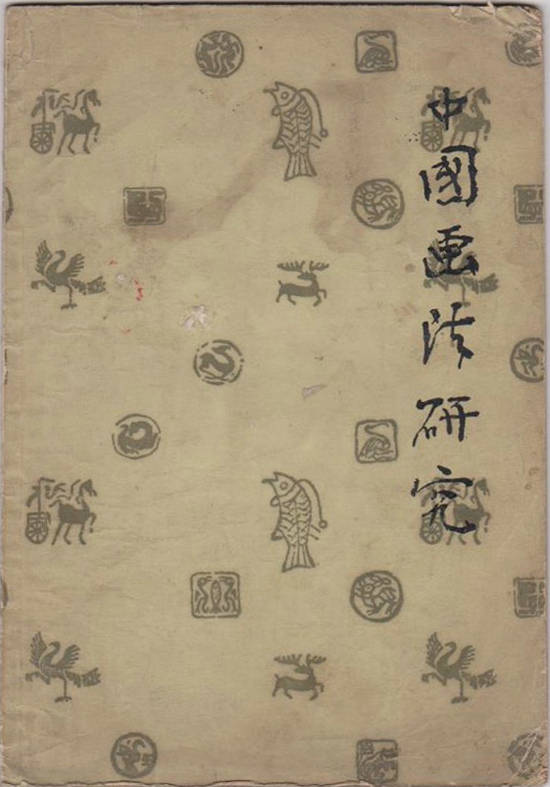 中國画法研究